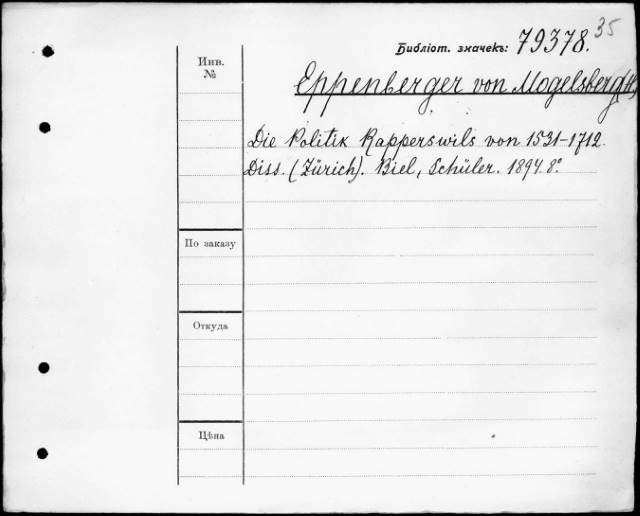 35
Библіот. значекъ: 79378.
Инв.
№
Eppenberger von Mogelsberg (H.)
Die Politik Rapperswils von 1531-1712.
Diss. (Zürich). Biel, Schüler. 1894. 8°
По заказу
Откуда
Цѣна